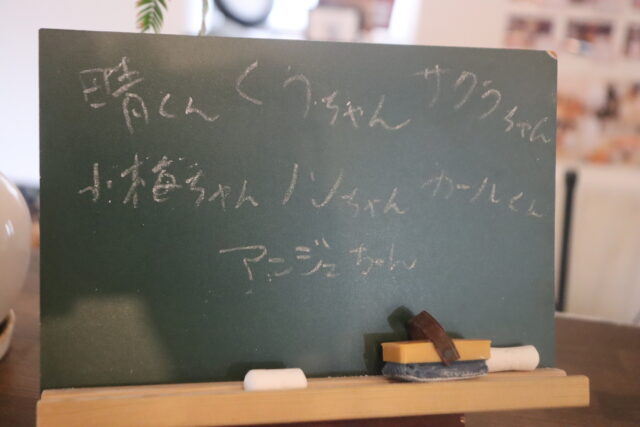 晴くん くうちゃん サクラちゃん
小梅ちゃん ノンちゃん カールくん
アンジュちゃん